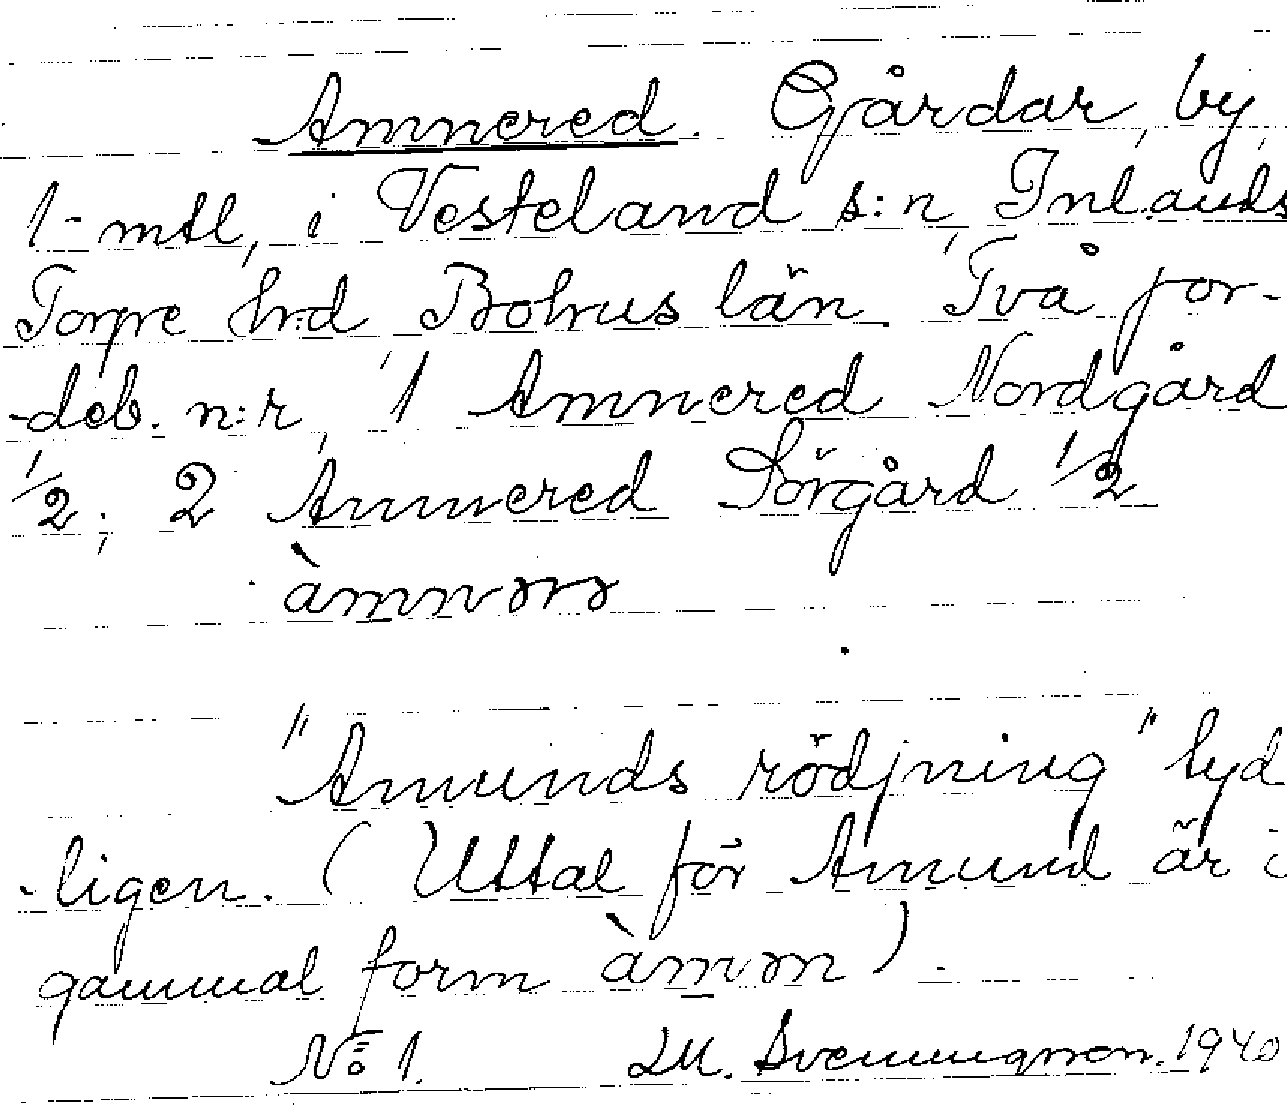 Amnered. Gårdar, by,
1-mtl, i Vesteland s:n, Inlands
Torpe hrd Bohus län. Två for-
-deb. n:r, 1 Amnered Nordgård
1/2; 2 Amnered Sörgård 1/2
"Amunds rödjning" tyd
-ligen. (Uttal för Amund är i
gammal form àmən)
No 1. M. Svenningsson. 1940